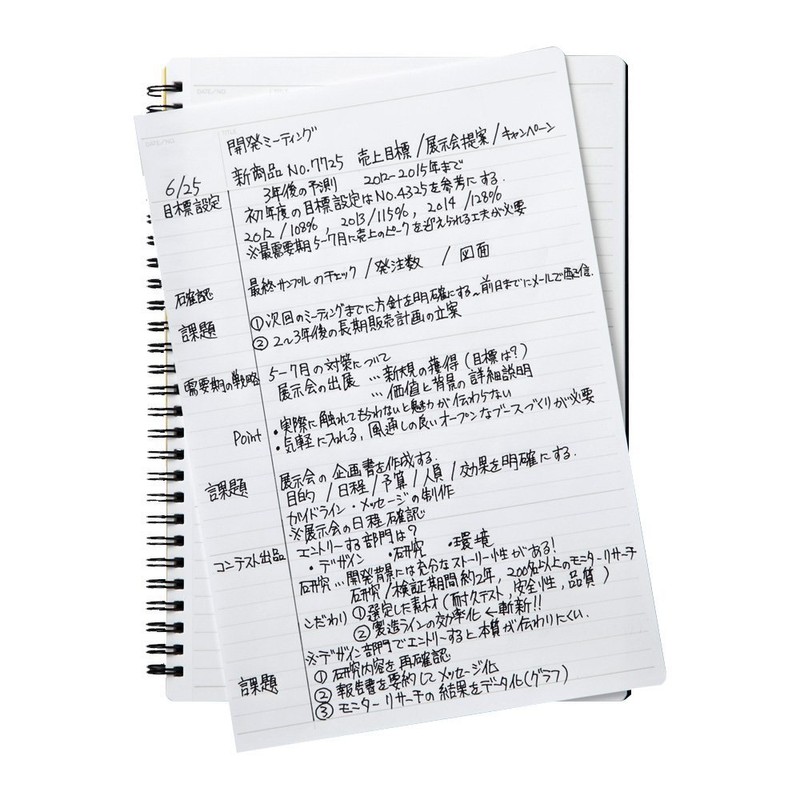 開発ミーティング
新商品No.7725 売上目標/展示会提案/キャンペーン
6/25 3年後の予測 2012-2015年まで
目標設定 初年度の目標設定はNo.4325を参考にする。
2012/108%, 2013/115%, 2014/128%
※最需要期5-7月に売上のピークを迎えられる工夫が必要
確認 最終サンプルのチェック/発注数 /図面
課題 ①次回のミーティングまでに方針を明確にする〜前日までにメールで配信.
②2〜3年後の長期販売計画の立案
需要期の戦略 5-7月の対策について
展示会の出展 …新規の獲得(目標は?)
…価値と背景の詳細説明
Point ・実際に触れてもらわないと魅力が伝わらない
・気軽に入れる、風通しの良いオープンなブースづくりが必要
課題 展示会の企画書を作成する.
目的/日程/予算/人員/効果を明確にする.
ガイドライン・メッセージの制作
※展示会の日程確認
コンテスト出品 エントリーする部門は?
・デザイン ・研究 ・環境
研究…開発背景には充分なストーリー性がある!
研究/検証期間約2年,200名以上のモニターリサーチ
こだわり ①選定した素材(耐久テスト,安全性,品質)
②製造ラインの効率化←斬新!!
※デザイン部門でエントリーすると本質が伝わりにくい.
課題 ①研究内容を再確認
②報告書を要約してメッセージ化
③モニターリサーチの結果をデータ化(グラフ)